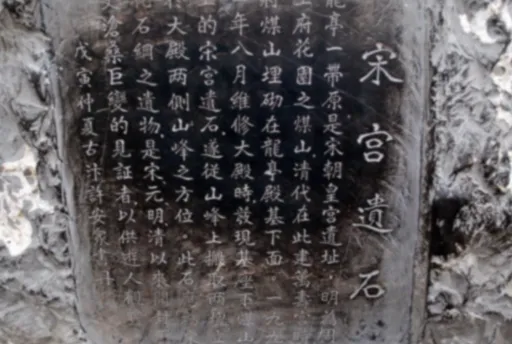 宋宫遺石
龍亭一帶原是宋朝皇宫遺址，明爲周
王府花園之煤山，清代在此建萬壽
将煤山埋砌在龍亭殿基下面，一九
年八月維修大殿時發現基座下煤山
上的宋宫遺石遂從山峰上
大殿两側山峰之方位，此石
花石綱之遺物，是宋元明清以来
滄桑巨變的見証者，以供遊人
戊寅仲夏古汴許安